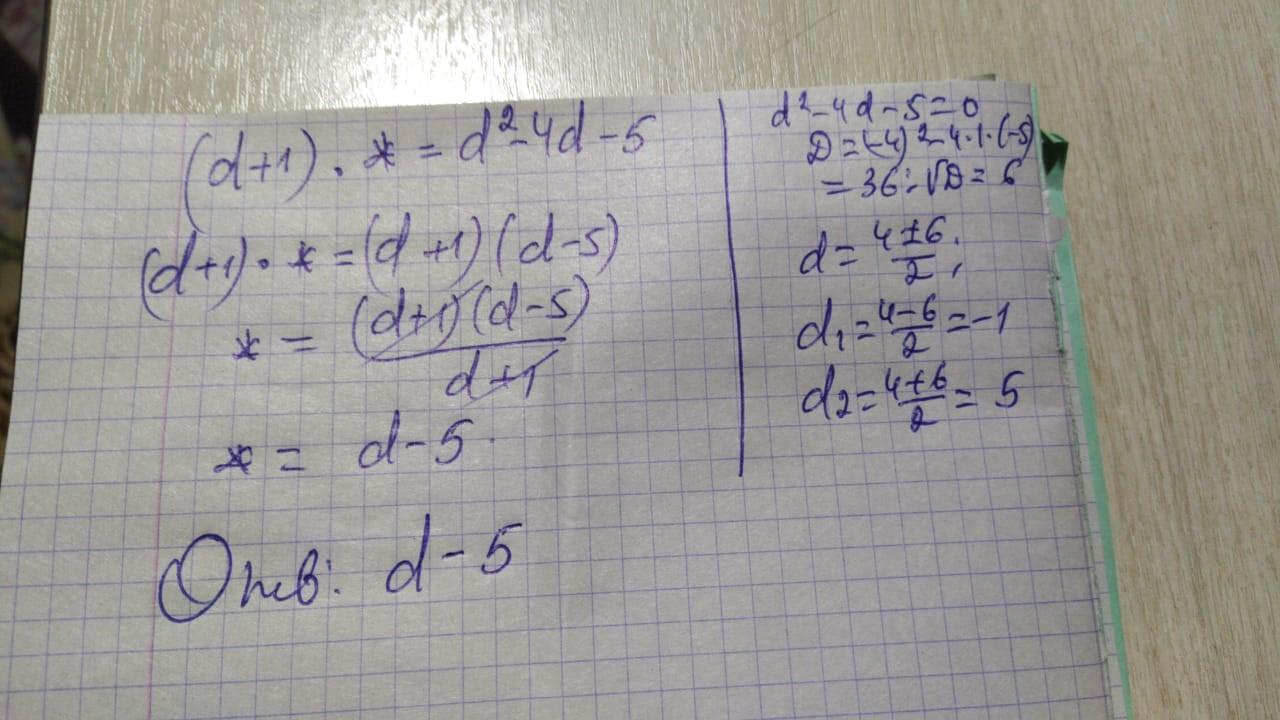 (d+1) · * = d²-4d-5
(d+1) · * = (d+1)(d-5)
* = (d+1)(d-5)
d+1
* = d-5
Отв: d-5
d²-4d-5=0
D=(-4)²-4·1·(-5)
= 36; √D = 6
d = 4±6/2;
d₁ = 4-6/2 = -1
d₂ = 4+6/2 = 5